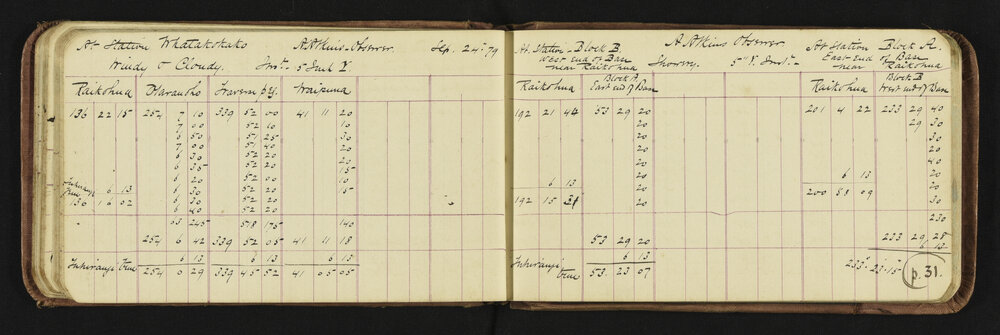 At Station Whatakohako A Atkins-Observer. Sep. 24th 79
Windy & Cloudy. Inst. 5 Inch Y.
Raikohua Waipuna
136 22 15 254 7 10 339 52 00 41 11 20
7 00 52 10 10
6 50 51 25 30
7 00 51 40 20
6 30 52 20 20
6 35 52 20 15
6 20 52 00 10
6 13 6 30 52 20 15
136 16 02 6 30 52 20
6 40 52 20
03 245 518 175 140
254 6 42 339 52 05 41 11 18
6 13 6 13 6 13
true 254 0 29 339 45 52 41 05 05
At Station - Block B A Atkins Observer At Station Block A.
West end of Base Showery. 5" Y. Inst.- East End of Base
near Raikohua near Raikohua
Block A Block B
Raikohua East end of Base Raikohua West end of Base
192 21 44 53 29 20 201 4 22 233 29 40
20 29 30
20 30
20 20
20 40
20 20
6 13 20 6 13 20
192 15 31 20 200 58 09 30
230
53 29 20 233 29 28
6 13 6 13
true 53 23 07 233° 23' 15"
p. 31.